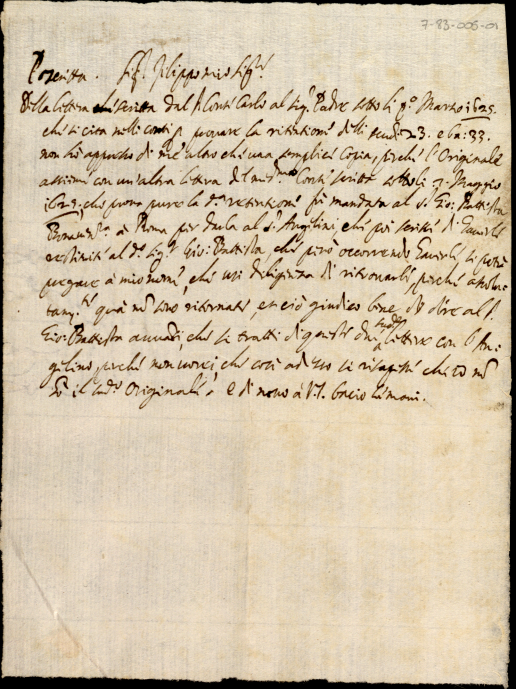 7-83-006-01
Poscritta. Sigr. Filippo mio Sigre.
Della lettera scritta dal Sr Conte Carlo al Sigr Padre sotto li po Marzo 1625.
che si cita nelli conti p provare la ritentione delli scudi 23. e ba: 33.
non hò appresso di me altro che una semplice Copia, perche l'Originale
assieme con un'altra lettera del medmo Conte scritta sotto li 3. Maggio
che prova pure la da. retentione fù mandata al Sr. Gio: Battista
à Roma per darla al Sr. Angilini, che poi scrisse di haverle
restituite al do Sigr. Gio: Battista che però occorrendo haverle si potrà
pregare à mio nome, che usi diligenza di ritrovarle, perche assolu-
tamte. quà nò sono ritornate, et ciò giudico bene di dire al Sr.
Gio: Battista avanti, che si tratti di queste due lettere con l'An-
gilino, perche non vorrei che così adesso si sapesse che io nò
hò il do. Originale, e di novo à V.S. bacio le mani.